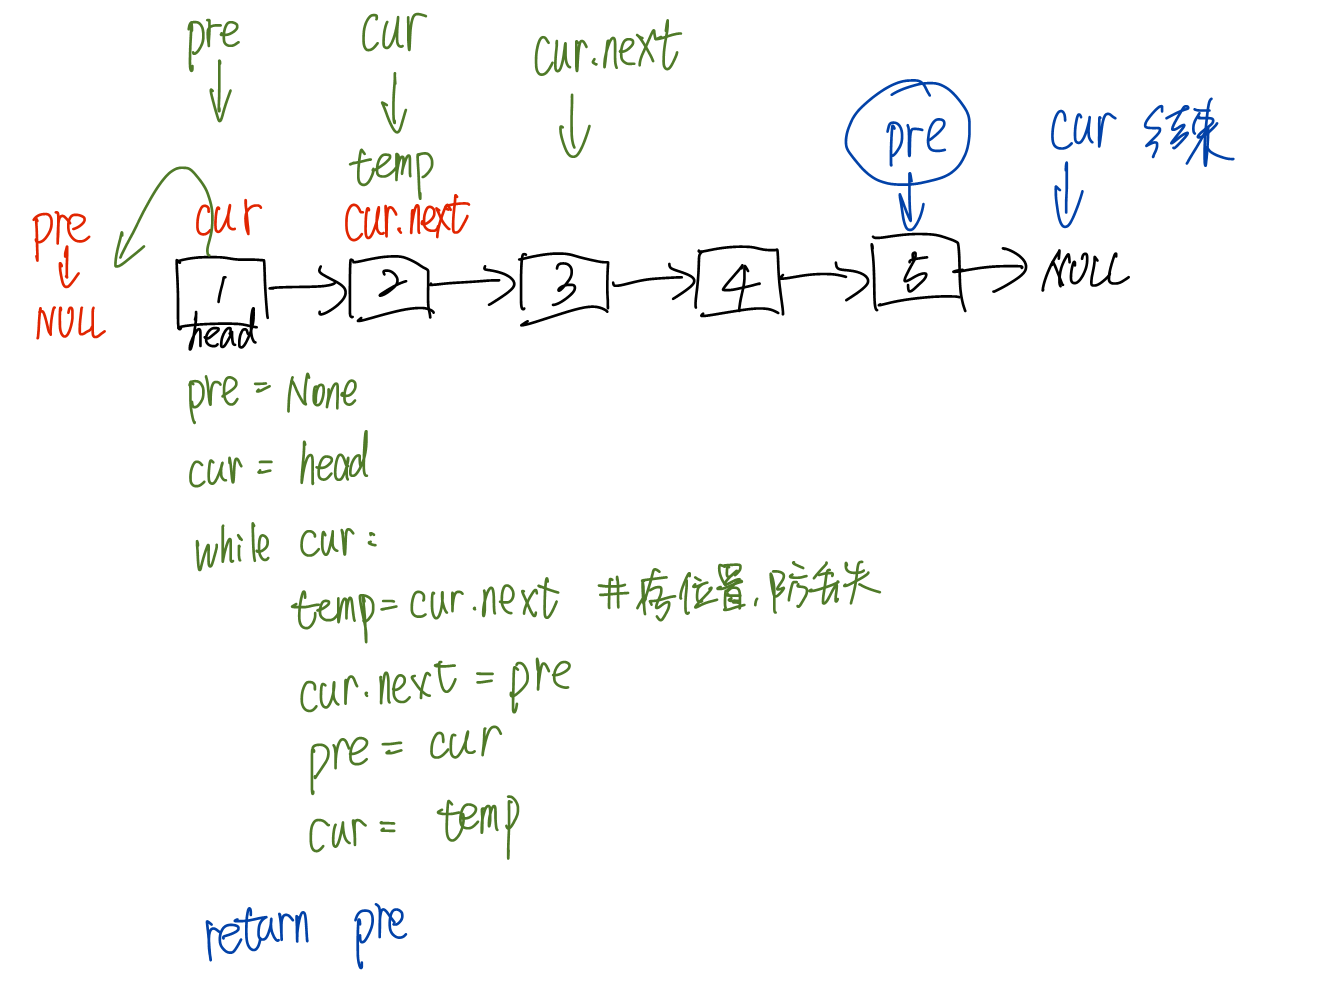 pre cur cur.next
temp pre cur 结束
pre cur cur.next
NULL 1 2 3 4 5 NULL
head
pre = None
cur = head
while cur:
temp = cur.next #存位置,防丢失
cur.next = pre
pre = cur
cur = temp
return pre